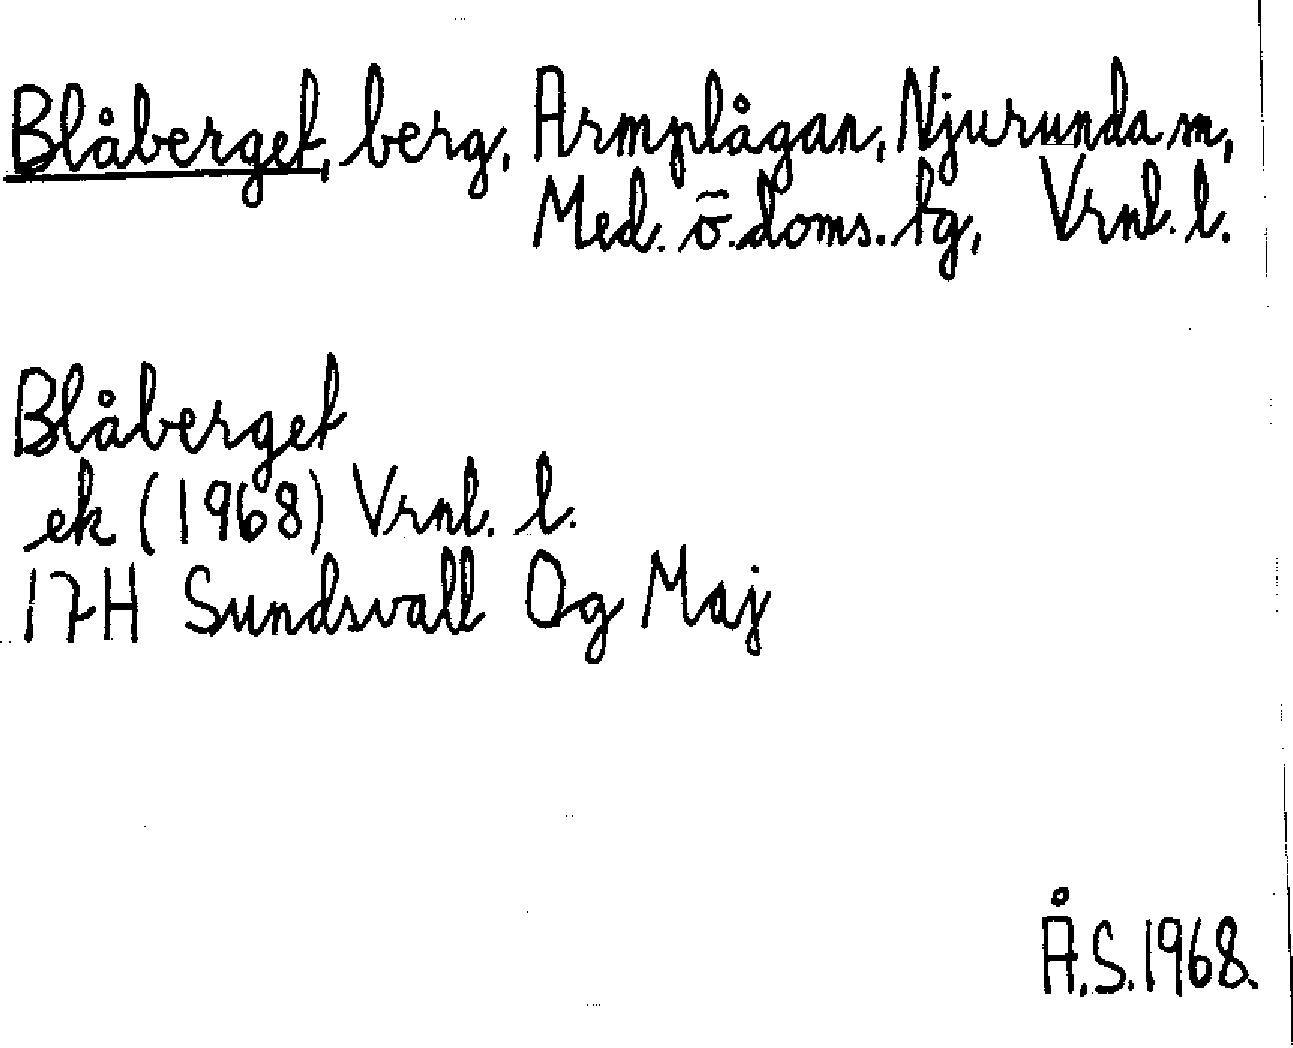 Blåberget, berg, Armplågan, Njurunda sn,
Med. ö. doms. tg, Vrnl. l.
Blåberget
ek (1968) Vrnl. l.
17H Sundsvall Og Maj
Å.S. 1968.